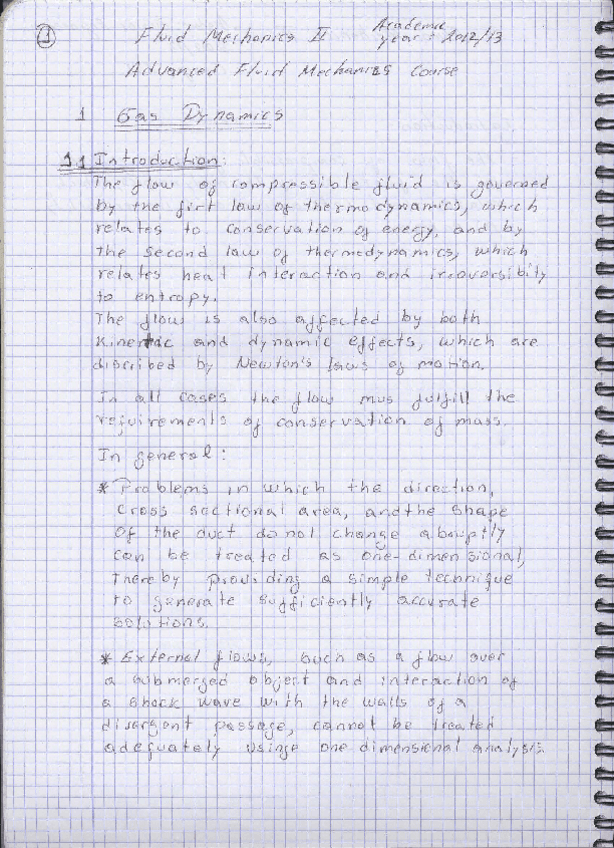 1 Fluid Mechanics II Academic
year: 2012/13
Advanced Fluid Mechanics Course
1 Gas Dynamics
1.1 Introduction:
The flow of compressible fluid is governed
by the first law of thermodynamics, which
relates to conservation of energy, and by
the second law of thermodynamics, which
relates heat interaction and irreversibity
to entropy.
The flow is also affected by both
kinetic and dynamic effects, which are
discribed by Newton's laws of motion.
In all cases the flow mus fulfill the
requirements of conservation of mass.
In general:
* Problems in which the direction,
cross sectional area, and the shape
of the duct do not change abruptly
can be treated as one-dimensional,
thereby providing a simple technique
to generate sufficiently accurate
solutions.
* External flows, such as a flow over
a submerged object and interaction of
a shock wave with the walls of a
divergent passage, cannot be treated
adequately usinge one dimensional analysis.